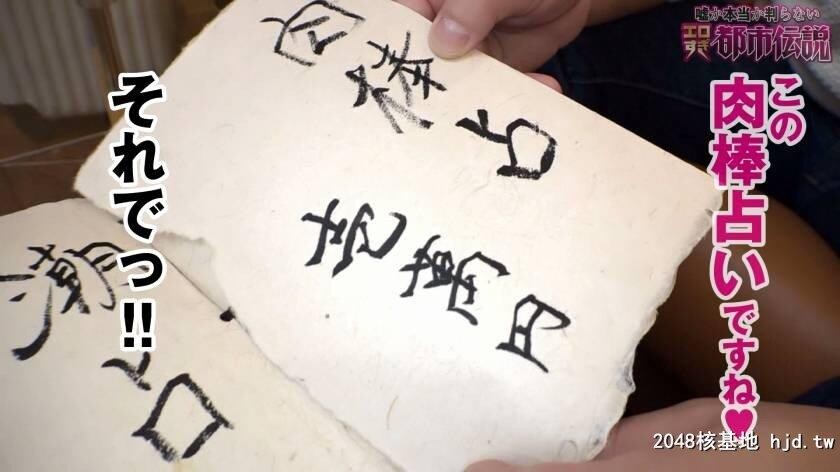 嘘か本当か判らない
エロすぎ都市伝説
この
肉棒占いですね♥
それでっ!!
肉棒占
壱萬円
潮占
2048核基地 hjd.tw